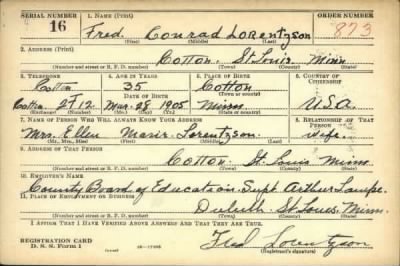 SERIAL NUMBER 1. NAME (Print) ORDER NUMBER
16 Fred Conrad Lorentzson 873
(First) (Middle) (Last)
2. ADDRESS (Print)
Cotton. St. Louis Minn
(Number and street or R. F. D. number) (Town) (County) (State)
3. TELEPHONE 4. AGE IN YEARS 5. PLACE OF BIRTH 6. COUNTRY OF CITIZENSHIP
Cotton 35 Cotton
DATE OF BIRTH (Town or county)
Cotton. 2F12 Mar. 28 1905 Minn U.S.A.
(Exchange) (Number) (Mo.) (Day) (Yr.) (State or country)
7. NAME OF PERSON WHO WILL ALWAYS KNOW YOUR ADDRESS 8. RELATIONSHIP OF THAT PERSON
Mrs. Ellen Lorentzson Wife
(Mr., Mrs., Miss) (First) (Middle) (Last)
9. ADDRESS OF THAT PERSON
Cotton St. Louis Minn.
(Number and street or R. F. D. number) (Town) (County) (State)
10. EMPLOYER'S NAME
County Board of Education Supt. Arthur
11. PLACE OF EMPLOYMENT OR BUSINESS
Duluth St. Louis. Minn.
(Number and street or R. F. D. number) (Town) (County) (State)
I AFFIRM THAT I HAVE VERIFIED ABOVE ANSWERS AND THAT THEY ARE TRUE.
REGISTRATION CARD
D. S. S. Form 1 Fred Lorentzson
(Registrant's signature)